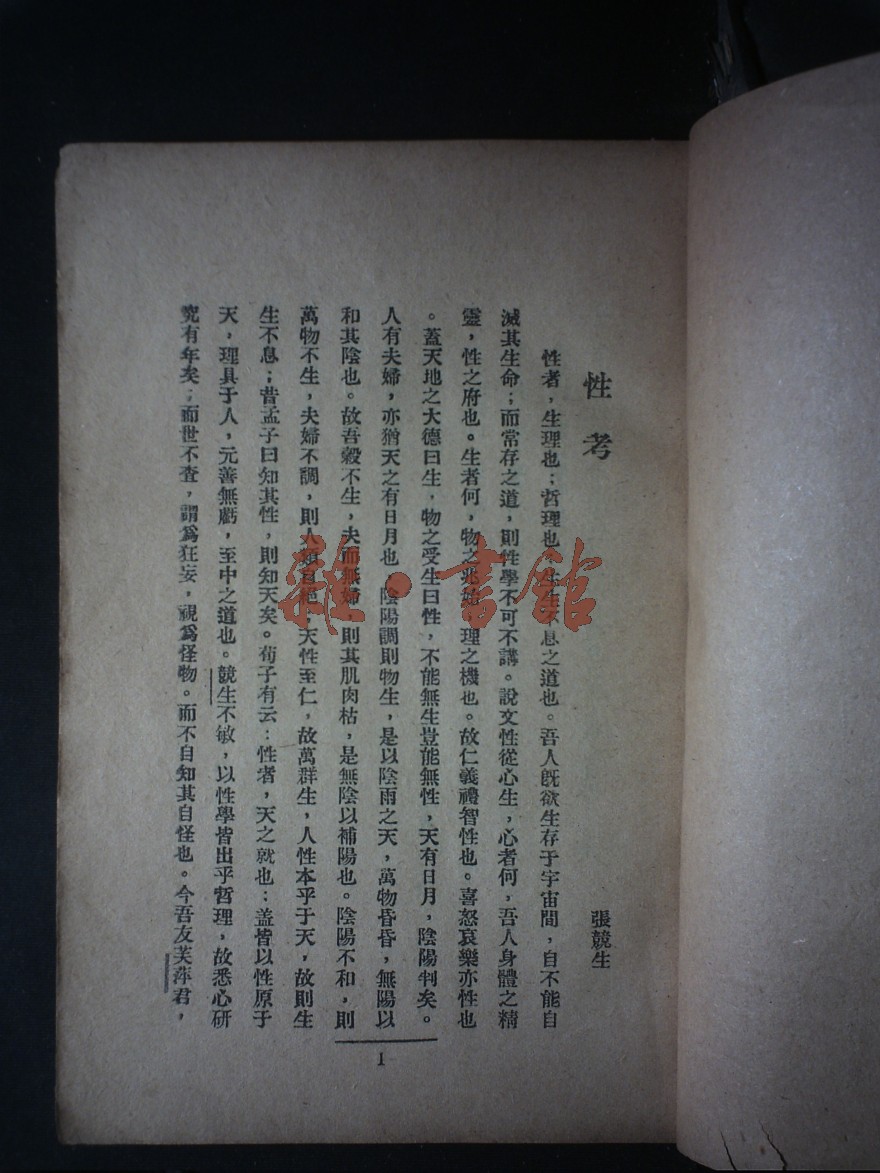 性考
張競生
性者，生理也；哲理也，生生不息之道也。吾人旣欲生存于宇宙間，自不能自
滅其生命；而常存之道，則性學不可不講。說文性從心生，心者何，吾人身體之精
靈，性之府也。生者何，物之兆始，理之機也。故仁義禮智性也。喜怒哀樂亦性也
。蓋天地之大德曰生，物之受生曰性，不能無生豈能無性，天有日月，陰陽判矣。
人有夫婦，亦猶天之有日月也，陰陽調則物生，是以陰雨之天，萬物昏昏，無陽以
和其陰也。故吾穀不生，夫而無婦，則其肌肉枯，是無陰以補陽也。陰陽不和，則
萬物不生，夫婦不調，則人類自絕，天性至仁，故萬群生，人性本乎于天，故則生
生不息；昔孟子曰知其性，則知天矣。荀子有云：性者，天之就也：盖皆以性原于
天，理具于人，元善無虧，至中之道也。競生不敏，以性學皆出乎哲理，故悉心研
究有年矣；而世不查，謂爲狂妄，視爲怪物。而不自知其自怪也。今吾友芙萍君，
1
雜·書館